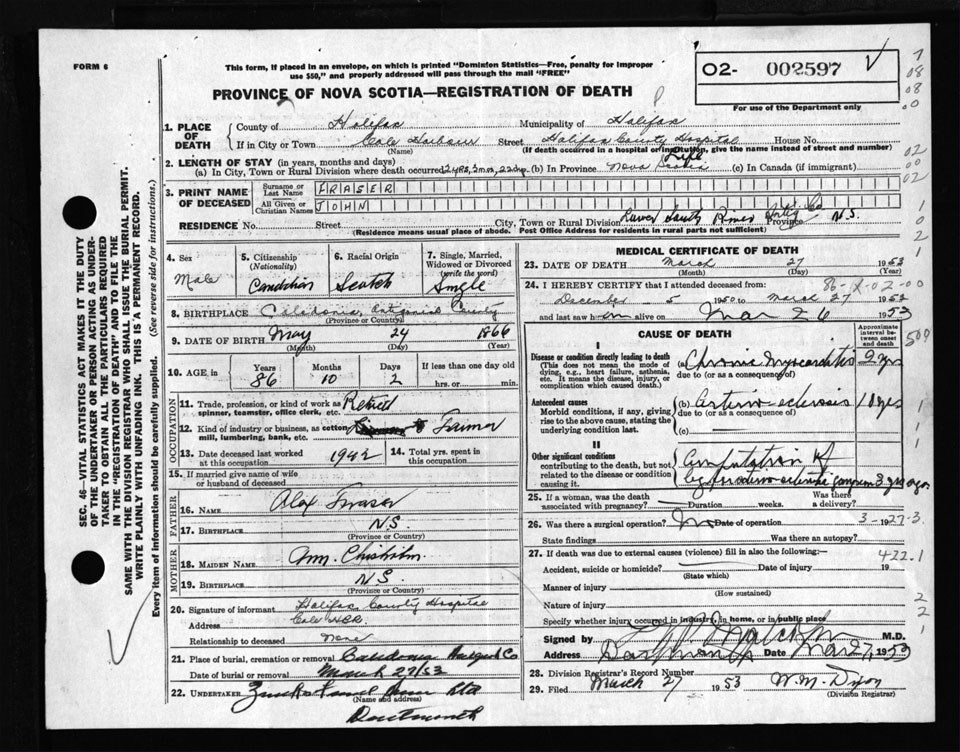 FORM 6
This form, if placed in an envelope, on which is printed "Dominion Statistics—Free, penalty for improper
use $50," and properly addressed will pass through the mail "FREE"
PROVINCE OF NOVA SCOTIA—REGISTRATION OF DEATH
O2- 002597
For use of the Department only
SEC. 46—VITAL STATISTICS ACT MAKES IT THE DUTY
OF THE UNDERTAKER OR PERSON ACTING AS UNDER-
TAKER TO OBTAIN ALL THE PARTICULARS REQUIRED
IN THE "REGISTRATION OF DEATH" AND TO FILE THE
SAME WITH THE DIVISION REGISTRAR WHO SHALL ISSUE THE BURIAL PERMIT.
WRITE PLAINLY WITH UNFADING INK. THIS IS A PERMANENT RECORD.
Every item of information should be carefully supplied. (See reverse side for instructions.)
1. PLACE OF DEATH
County of Halifax Municipality of Halifax
If in City or Town Cole Harbour Street Halifax County Hospital
(Name) (If death occurred in a hospital or institution, give the name instead of street and number)
2. LENGTH OF STAY (in years, months and days)
(a) In City, Town or Rural Division where death occurred 2 yrs, 3 mos, 22 dys (b) In Province Life Nova Scotia (c) In Canada (if immigrant)
3. PRINT NAME OF DECEASED
Surname or Last Name FRASER
All Given or Christian Names JOHN
RESIDENCE No. Street City, Town or Rural Division River Province N.S.
(Residence means usual place of abode. Post Office Address for residents in rural parts not sufficient)
4. Sex Male
5. Citizenship (Nationality) Canadian
6. Racial Origin Scotch
7. Single, Married, Widowed or Divorced (write the word) Single
8. BIRTHPLACE Caledonia, Antigonish County
(Province or Country)
9. DATE OF BIRTH May 24 1866
(Month) (Day) (Year)
10. AGE in Years 86 Months 10 Days 2 If less than one day old hrs. or min.
OCCUPATION
11. Trade, profession, or kind of work as spinner, teamster, office clerk, etc. Retired
12. Kind of industry or business, as cotton mill, lumbering, bank, etc. Farmer
13. Date deceased last worked at this occupation 1942
14. Total yrs. spent in this occupation
15. If married give name of wife or husband of deceased
FATHER
16. NAME Alex Fraser
17. BIRTHPLACE N.S.
(Province or Country)
MOTHER
18. MAIDEN NAME Ann Chisholm
19. BIRTHPLACE N.S.
(Province or Country)
20. Signature of informant Halifax County Hospital
Address Cole HBR.
Relationship to deceased None
21. Place of burial, cremation or removal Caledonia Co
Date of burial or removal March 27/53
22. UNDERTAKER Ltd
(Name and address)
Dartmouth
MEDICAL CERTIFICATE OF DEATH
23. DATE OF DEATH March 27 1953
(Month) (Day) (Year)
86-X-02-00
24. I HEREBY CERTIFY that I attended deceased from:
December 5 1950 to March 27 1953
and last saw him alive on Mar 26 1953
CAUSE OF DEATH
Approximate interval between onset and death
I
Disease or condition directly leading to death
(This does not mean the mode of dying, e.g., heart failure, asthenia, etc. It means the disease, injury, or complication which caused death.)
(a) Chronic Myocarditis 2 yrs
due to (or as a consequence of)
Antecedent causes
Morbid conditions, if any, giving rise to the above cause, stating the underlying condition last.
(b) Arterio sclerosis 10 yrs
due to (or as a consequence of)
(c)
II
Other significant conditions
contributing to the death, but not related to the disease or condition causing it.
Amputation of
leg for arterio sclerotic gangrene 3 yrs ago
25. If a woman, was the death associated with pregnancy? Duration weeks. Was there a delivery?
26. Was there a surgical operation? No Date of operation 19
State findings Was there an autopsy?
27. If death was due to external causes (violence) fill in also the following:—
422.1
Accident, suicide or homicide? Date of injury 19
(State which)
Manner of injury
(How sustained)
Nature of injury
Specify whether injury occurred in industry, in home, or in public place
Signed by M.D.
Address Dartmouth Date Mar 27, 1953
28. Division Registrar's Record Number
29. Filed March 27 1953 W. M. Dixon
(Division Registrar)